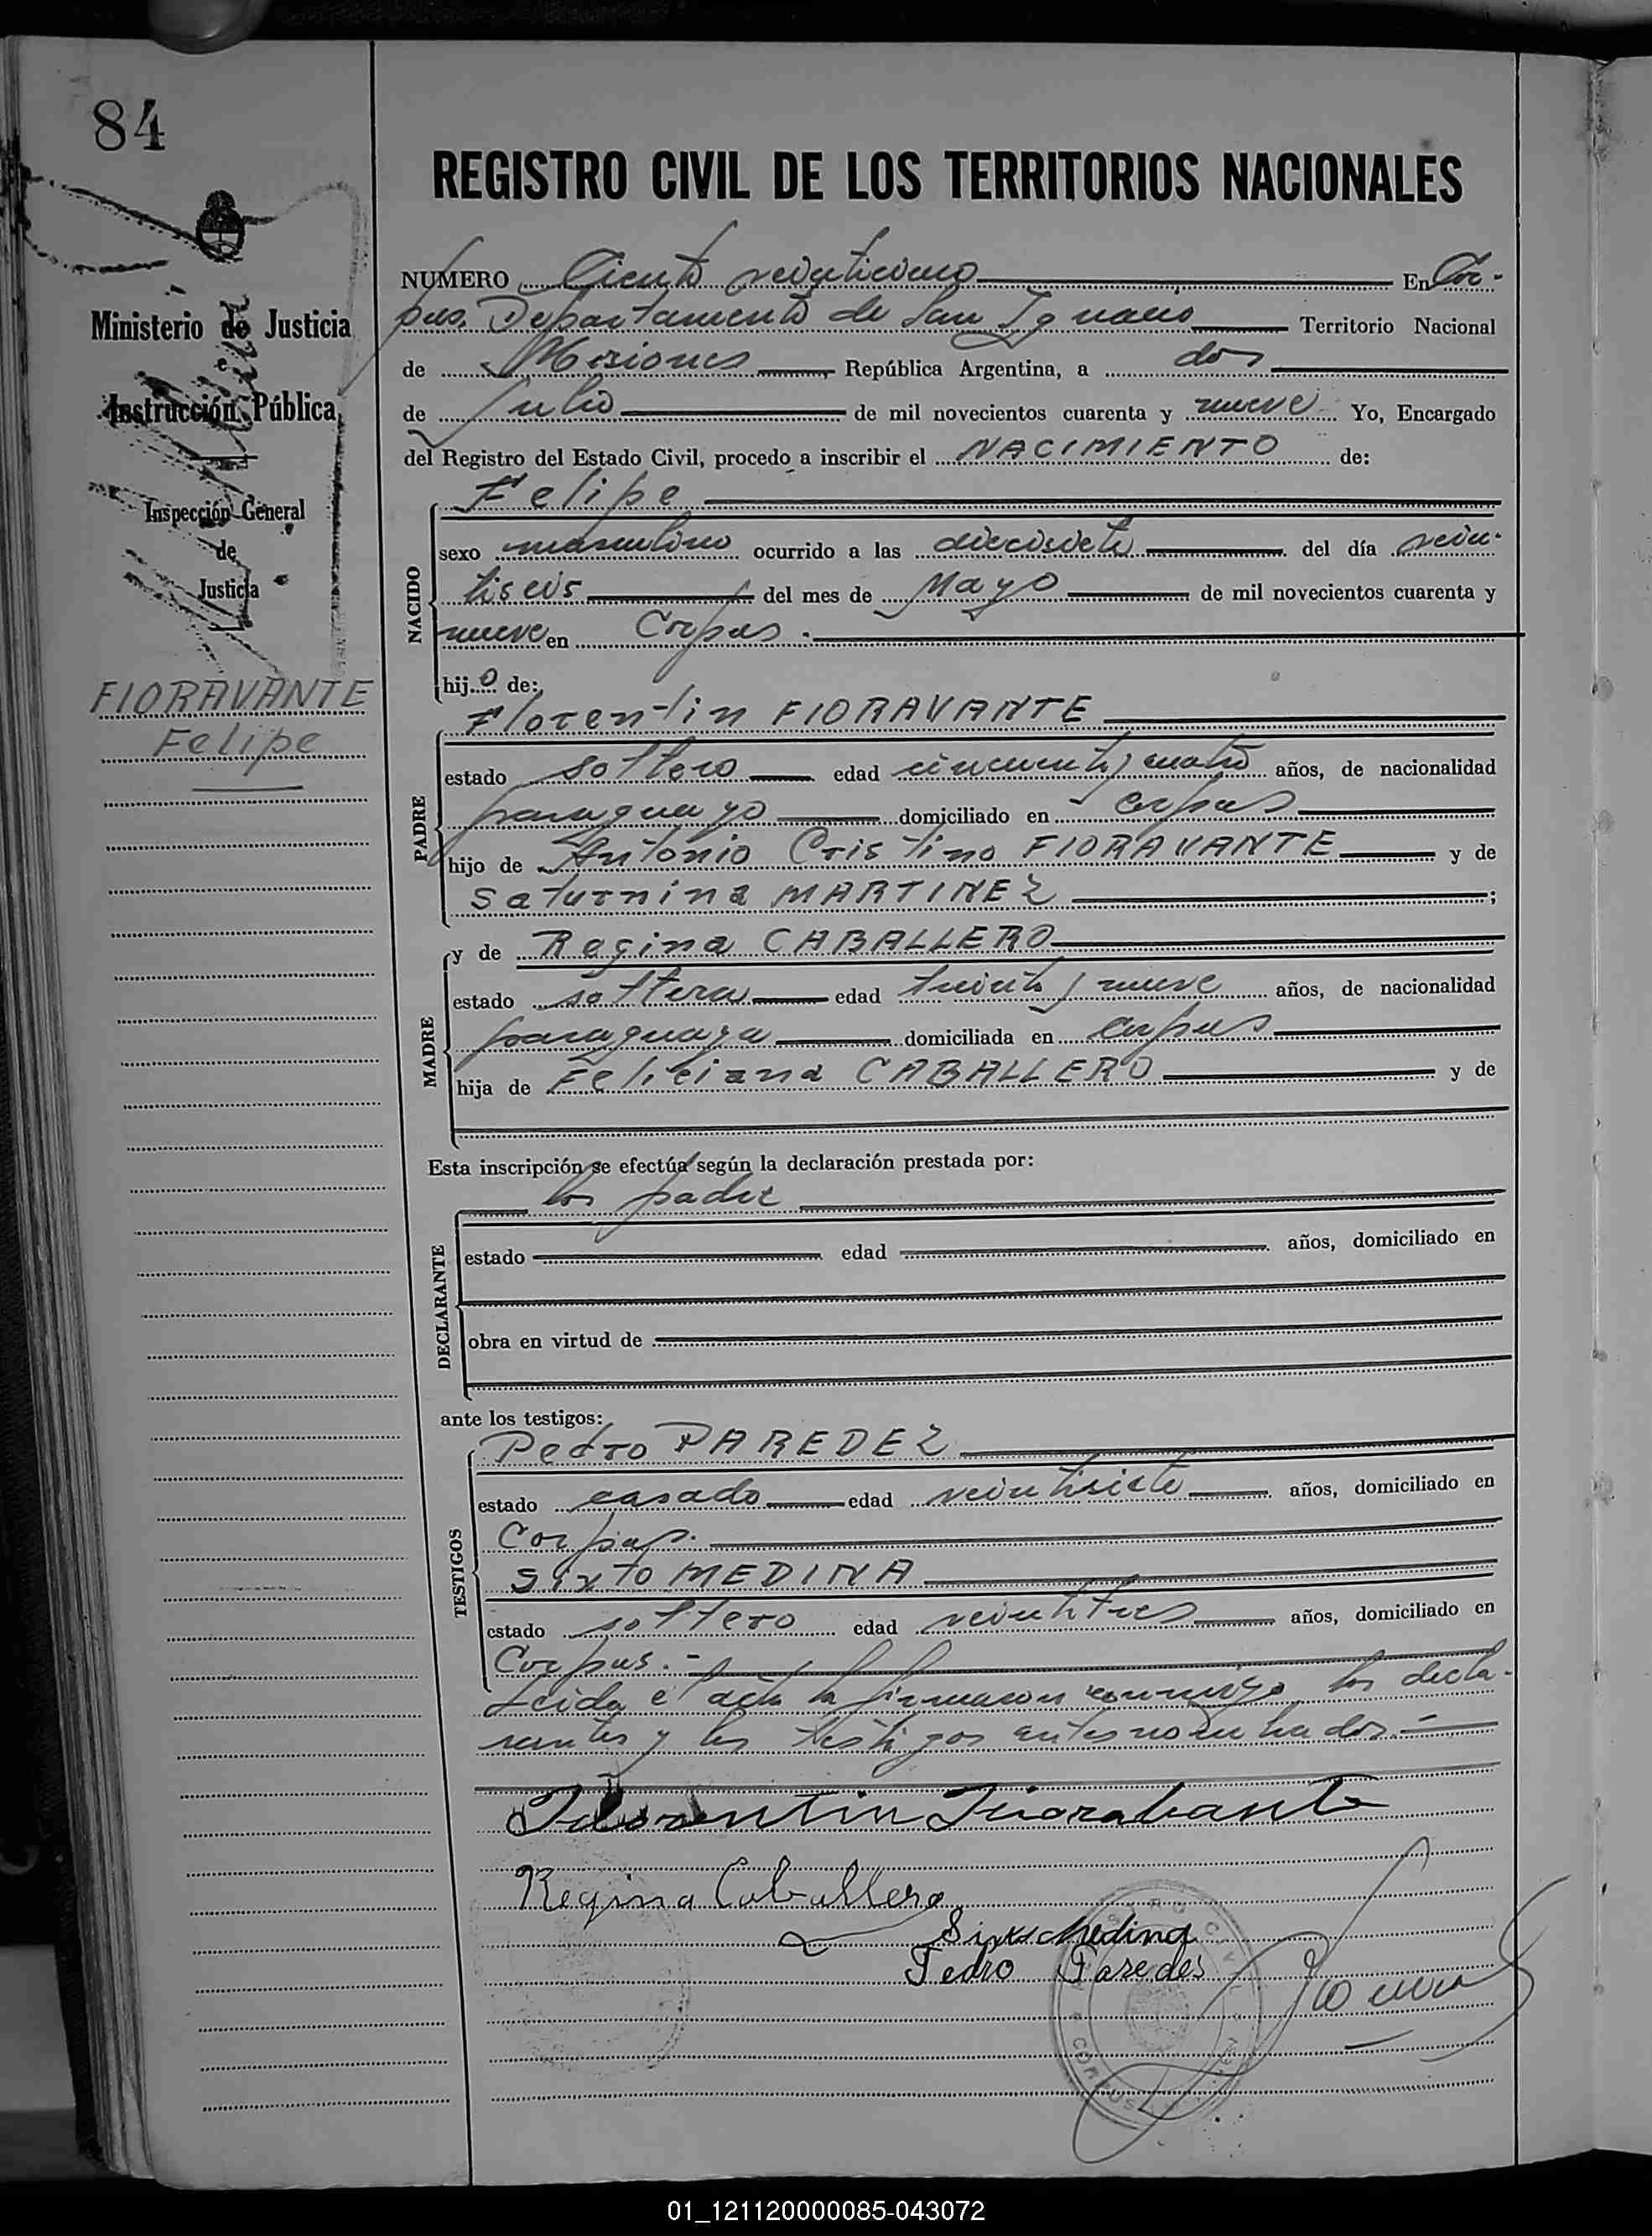 84
REGISTRO CIVIL DE LOS TERRITORIOS NACIONALES
Ministerio de Justicia
e
Instrucción Pública
Inspección General
de
Justicia
FIORAVANTE
Felipe
NUMERO Ciento veinticinco En Cor-
pus. Departamento de San Ignacio Territorio Nacional
de Misiones República Argentina, a dos
de Julio de mil novecientos cuarenta y nueve Yo, Encargado
del Registro del Estado Civil, procedo a inscribir el NACIMIENTO de:
NACIDO
Felipe
sexo masculino ocurrido a las diecisiete del día vein-
tiseis del mes de Mayo de mil novecientos cuarenta y
nueve en Corpus.
hijo de:
PADRE
Florentin FIORAVANTE
estado soltero edad cincuenta y cuatro años, de nacionalidad
paraguayo domiciliado en Corpus
hijo de Antonio Cristino FIORAVANTE y de
Saturnina MARTINEZ ;
MADRE
y de Regina CABALLERO
estado soltera edad treinta y nueve años, de nacionalidad
paraguaya domiciliada en Corpus
hija de Feliciana CABALLERO y de
Esta inscripción se efectúa según la declaración prestada por:
DECLARANTE
los padre
estado edad años, domiciliado en
obra en virtud de
ante los testigos:
TESTIGOS
Pedro PAREDEZ
estado casado edad veintisiete años, domiciliado en
Corpus.
Sixto MEDINA
estado soltero edad veintitres años, domiciliado en
Corpus.-
Leida el acta la firmaron conmigo los decla-
rantes y los testigos antes nombrados.-
Florentin Fiorabante
Regina Caballero
Sixto Medina
Pedro Paredes
CORPUS
01_121120000085-043072